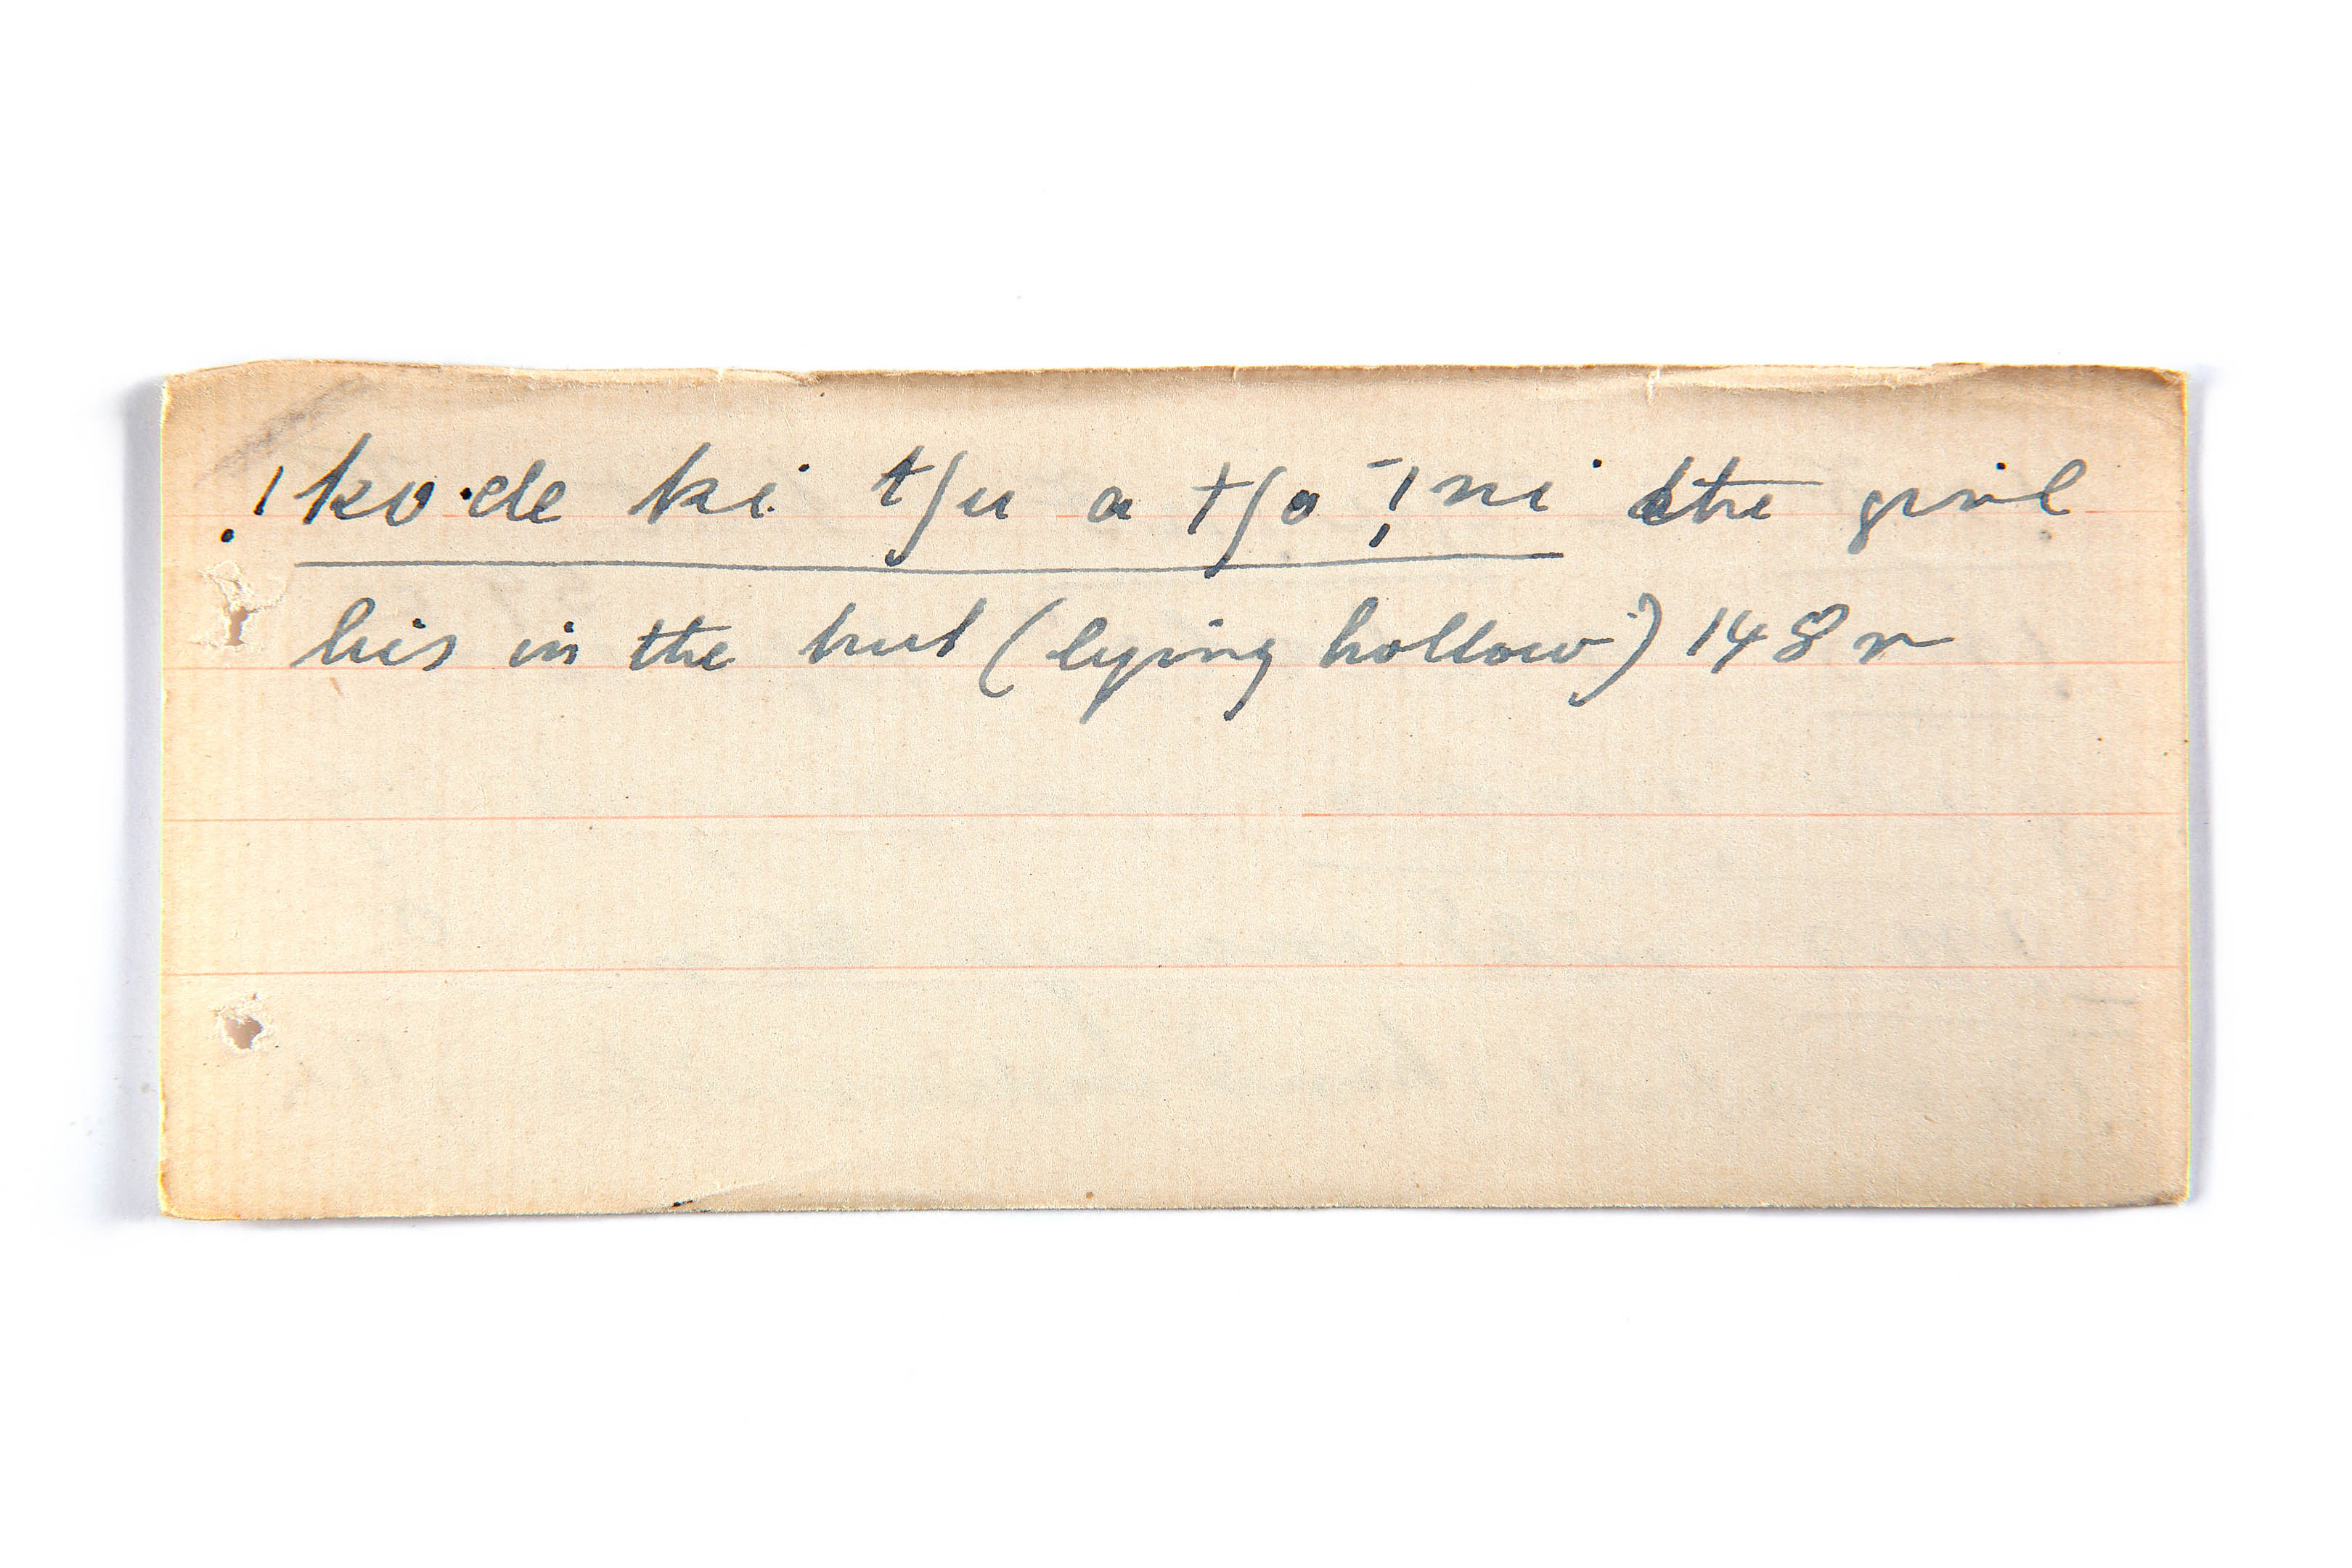 !ko·de ki tʃu a tʃo !̄ni the girl
lies in the hut (lying hollow) 148 r